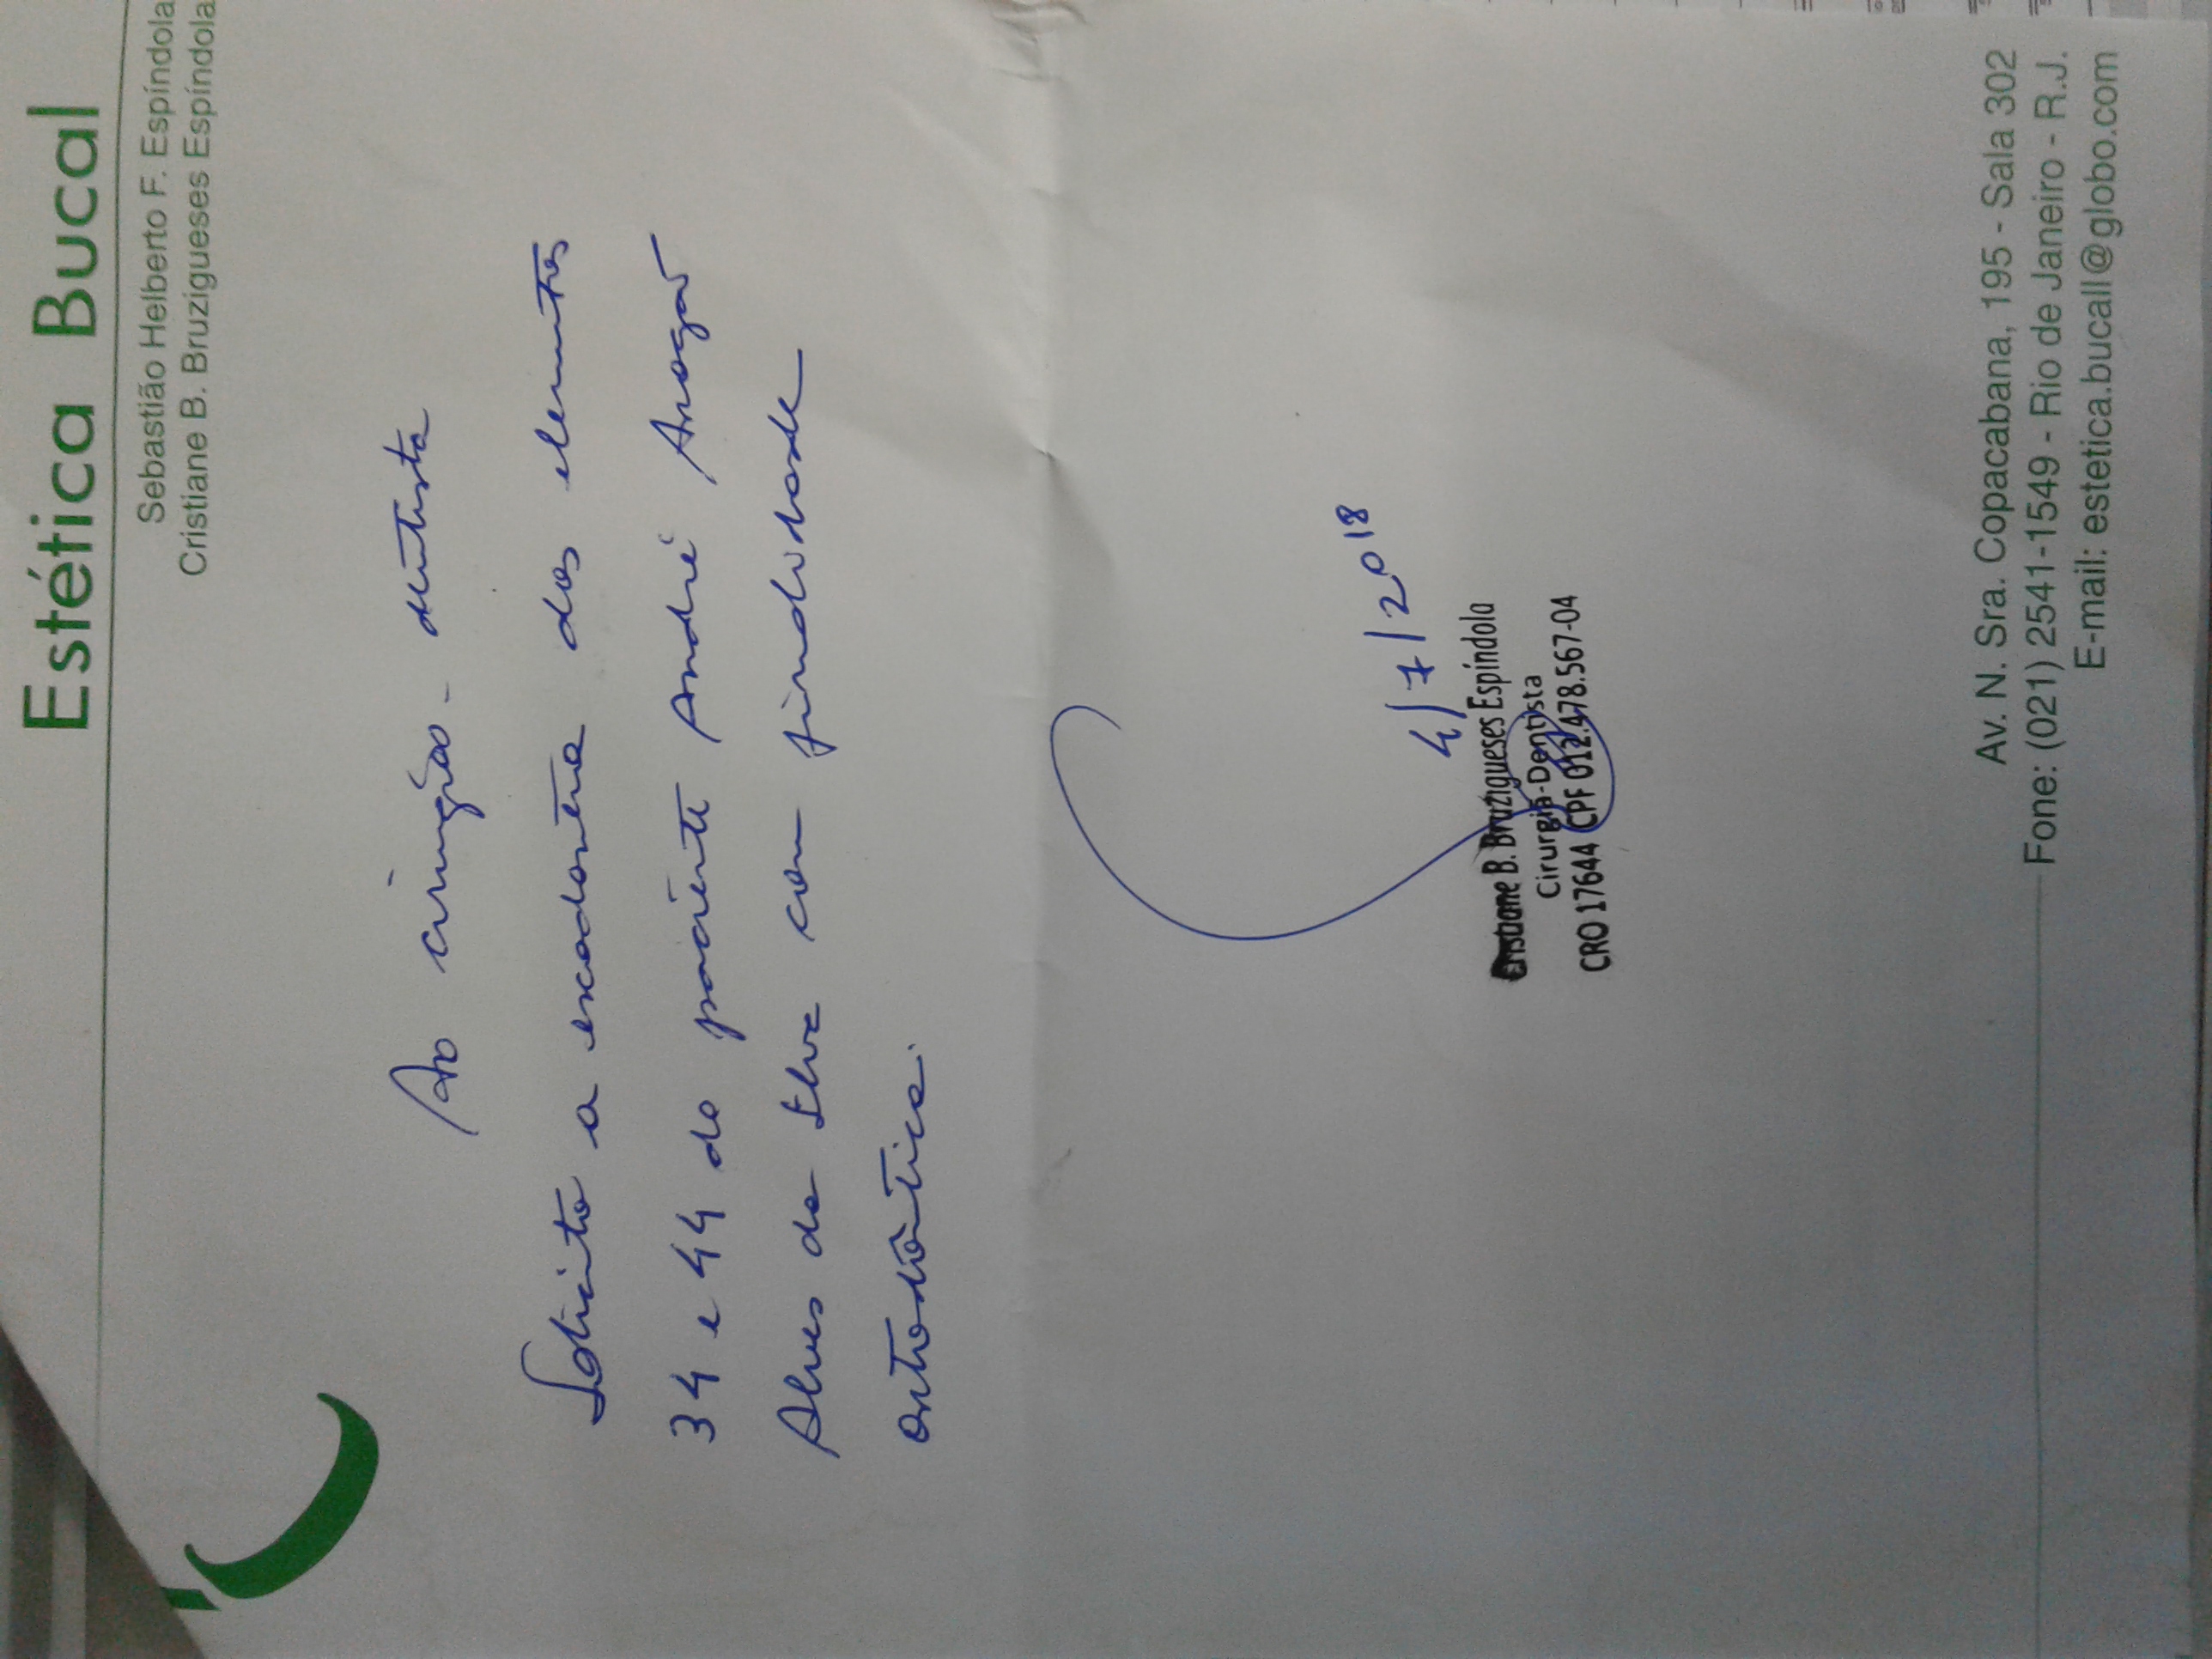 Estética Bucal
Sebastião Helberto F. Espíndola
Cristiane B. Bruzigueses Espíndola
Ao cirurgião-dentista
Solicito a exodontia dos elementos
34 e 44 do paciente André Aragão
Alves da Silva com finalidade
ortodôntica.
4/7/2018
Cristiane B. Bruzigueses Espíndola
Cirurgiã-Dentista
CRO 17644 CPF 012.478.567-04
Av. N. Sra. Copacabana, 195 - Sala 302
Fone: (021) 2541-1549 - Rio de Janeiro - R.J.
E-mail: estetica.bucall@globo.com